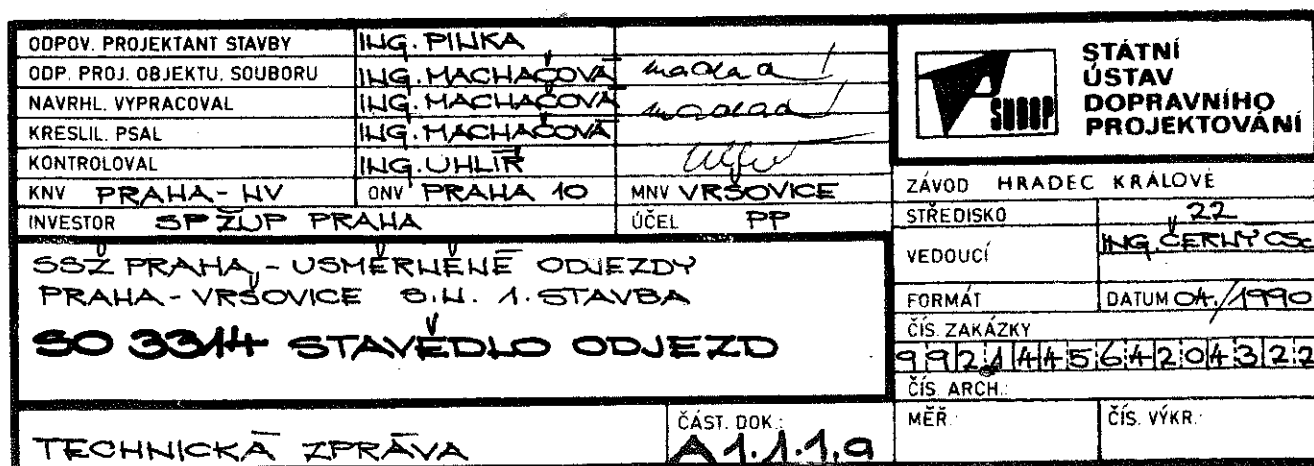 ODPOV. PROJEKTANT STAVBY ING. PINKA
ODP. PROJ. OBJEKTU. SOUBORU ING. MACHAČOVÁ
NAVRHL. VYPRACOVAL ING. MACHAČOVÁ
KRESLIL. PSAL ING. MACHAČOVÁ
KONTROLOVAL ING. UHLÍŘ
KNV PRAHA-HV ONV PRAHA 10 MNV VRŠOVICE
INVESTOR SP ŽUP PRAHA ÚČEL PP
SSŽ PRAHA, - USMĚRNĚNÉ ODJEZDY
PRAHA-VRŠOVICE S.N. 1. STAVBA
SO 3314 STAVĚDLO ODJEZD
TECHNICKÁ ZPRÁVA ČÁST. DOK.: A1.1.1.a
SUDOP
STÁTNÍ
ÚSTAV
DOPRAVNÍHO
PROJEKTOVÁNÍ
ZÁVOD HRADEC KRÁLOVÉ
STŘEDISKO 22
VEDOUCÍ ING. ČERNÝ CSc
FORMÁT DATUM 04./1990
ČÍS. ZAKÁZKY
992144564204322
ČÍS. ARCH.:
MĚŘ. ČÍS. VÝKR.: